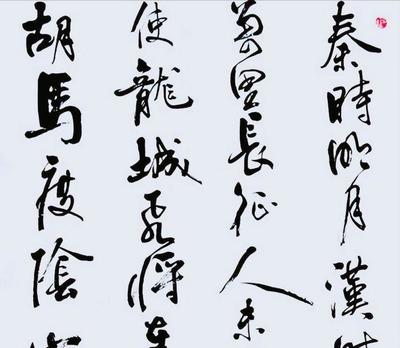 秦時明月漢時
萬里長征人未
使龍城飛將在
胡馬度陰